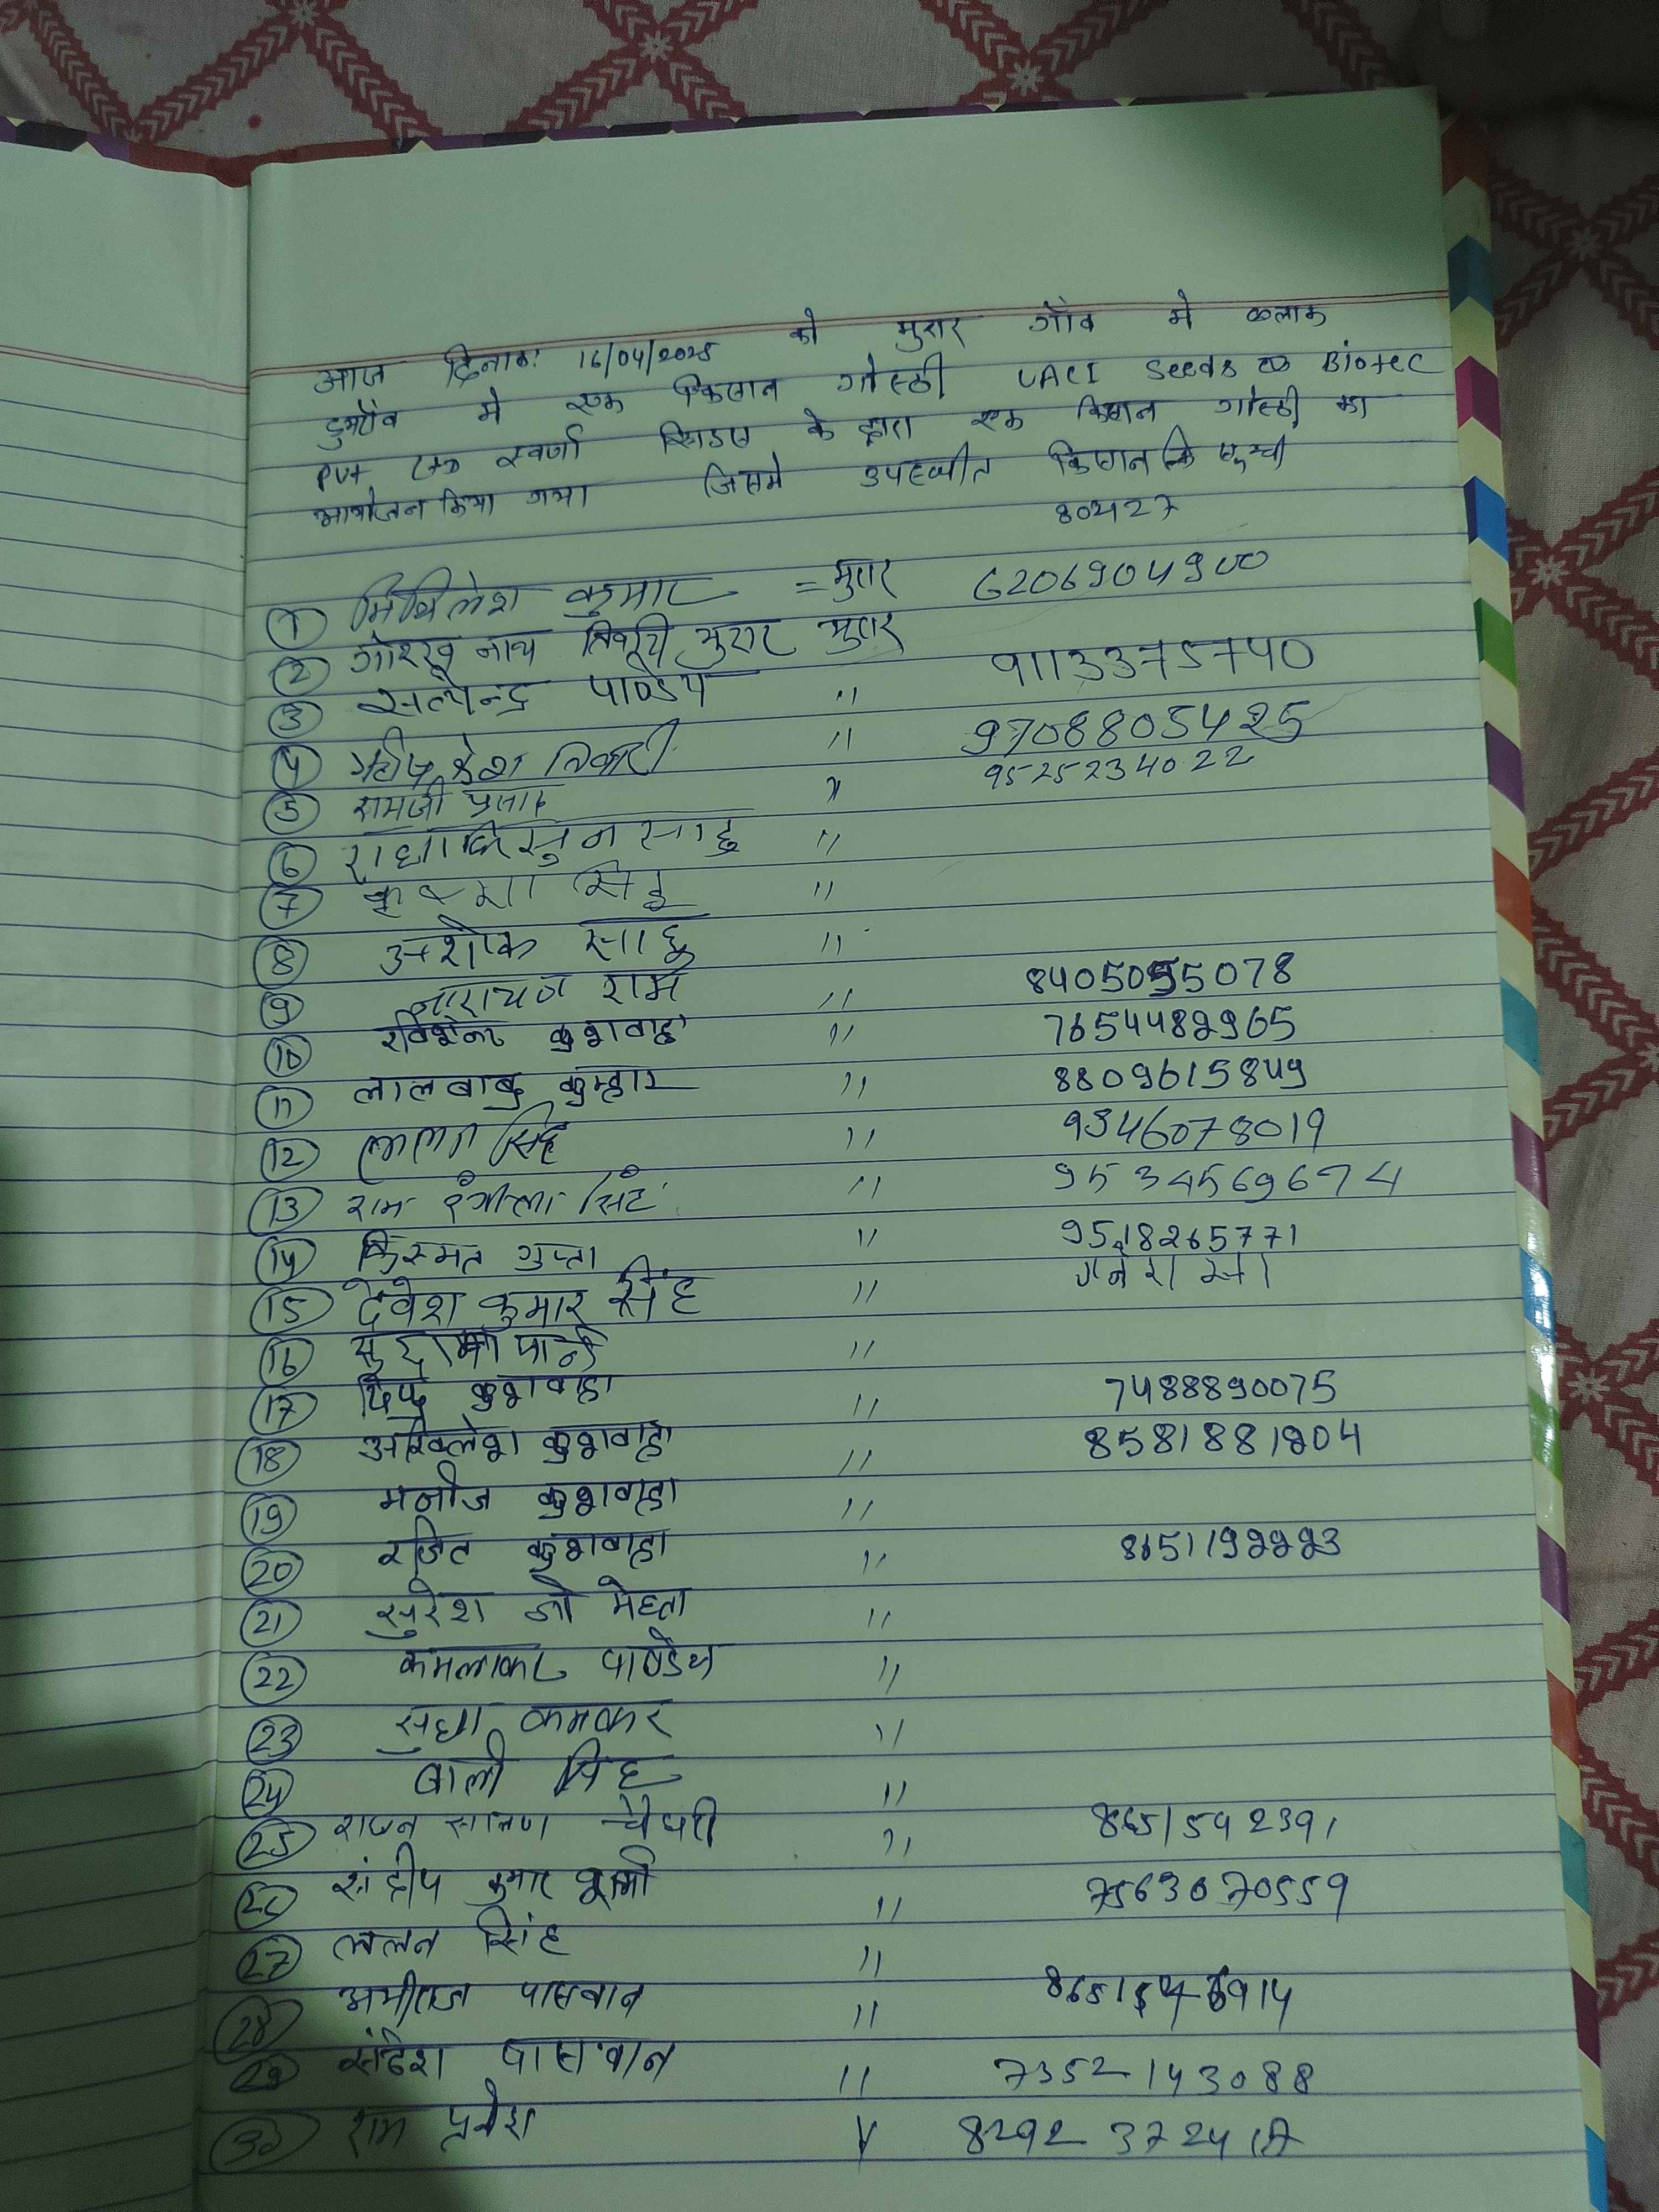 आज दिनांक: 16/04/2025 को मुरार गाँव मे ब्लाक
डुमराँव मे एक किसान गोस्ठी UACI Seeds Biotec
Pvt स्वर्णा सिडस के द्वारा एक किसान गोस्ठी का
आयोजन किया गया जिसमे उपस्थीत किसान कि सूच्ची
802127
① मिथिलेश कुमार = मुरार 6206904900
② गोरख नाथ तिवारी मुरार मुरार
③ सत्येन्द्र पाण्डेय " 9113375740
④ तिवारी " 9708805425
⑤ रामजी प्रसाद " 9525234022
⑥ राधाकिसुन साहु "
⑦ कृष्णा सिंह "
⑧ अशोक साहु "
⑨ नारायण राम " 8405055078
⑩ रविशंकर कुशवाहा " 7654482965
⑪ लालबाबु कुम्हार " 8809615849
⑫ ललन सिंह " 9546078019
⑬ राम रंगीला सिंह " 9534569674
⑭ किस्मत गुप्ता " 9518265771
⑮ देवेश कुमार सिंह "
⑯ सुदामा पान्डे "
⑰ कुशवाहा " 7488890075
⑱ अखिलेश कुशवाहा " 8581881204
⑲ मनोज कुशवाहा "
⑳ रंजित कुशवाहा " 8651192223
㉑ सुरेश जी मेहता "
㉒ कमलाकर पाण्डेय "
㉓ सुधा कमकर "
㉔ बाली सिंह "
㉕ चौधरी " 8651542391
㉖ संदीप कुमार शर्मा " 7563070559
㉗ ललन सिंह "
㉘ पासवान "
㉙ संदेश पासवान " 7352143088
㉚ राम प्रवेश "